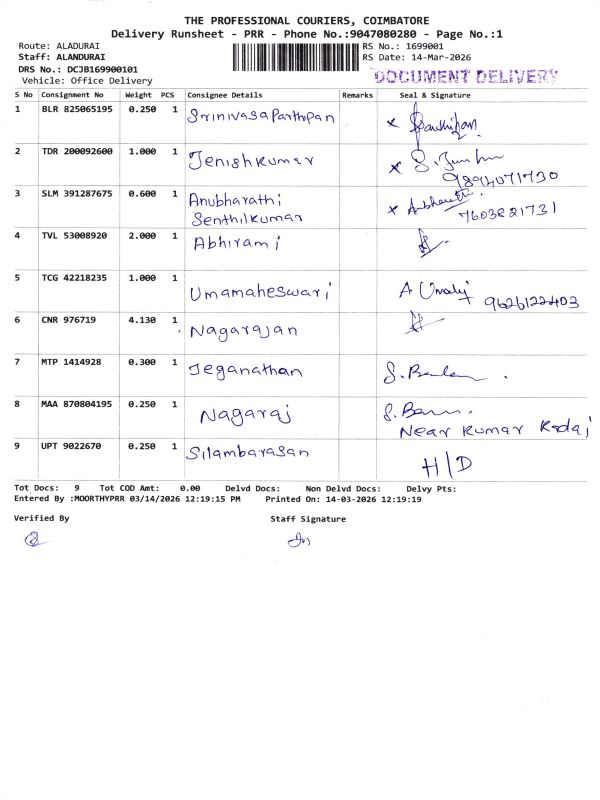 THE PROFESSIONAL COURIERS, COIMBATORE
Delivery Runsheet - PRR - Phone No.:9047080280 - Page No.:1
Route: ALADURAI
RS No.: 1699001
Staff: ALANDURAI
RS Date: 14-Mar-2026
DRS No.: DCJB169900101
Vehicle: Office Delivery
DOCUMENT DELIVERY
S No Consignment No Weight PCS Consignee Details Remarks Seal & Signature
1 BLR 825065195 0.250 1 SrinivasaParthipan x
2 TDR 200092600 1.000 1 Jenishkumar x
9894071730
3 SLM 391287675 0.600 1 Anubharathi x
Senthilkumar 7603821731
4 TVL 53008920 2.000 1 Abhirami
5 TCG 42218235 1.000 1 Umamaheswari A 9626122403
6 CNR 976719 4.130 1 Nagarajan
7 MTP 1414928 0.300 1 Jeganathan
8 MAA 870804195 0.250 1 Nagaraj
Near Kumar
9 UPT 9022670 0.250 1 Silambarasan H/D
Tot Docs: 9 Tot COD Amt: 0.00 Delvd Docs: Non Delvd Docs: Delvy Pts:
Entered By :MOORTHYPRR 03/14/2026 12:19:15 PM Printed On: 14-03-2026 12:19:19
Verified By Staff Signature